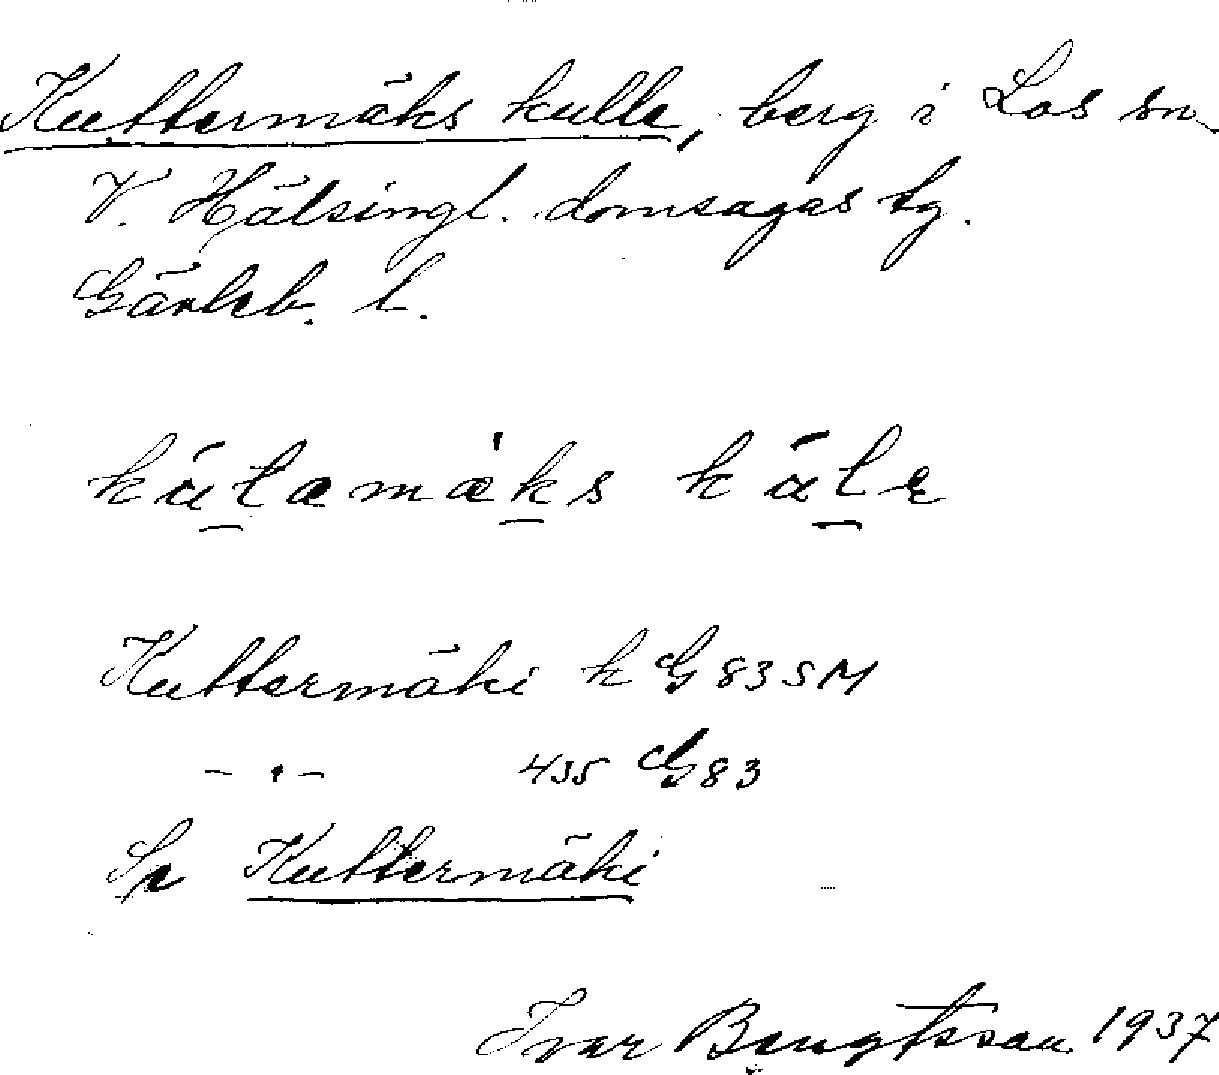 Kuttermäks kulle, berg i Los sn
V. Hälsingl. domsagas tg.
Gävleb. l.
kälamäks käle
Kuttermäki k G 83 SM
- " - 435 G 83
Se Kuttermäki
Ivar Bengtsson 1937